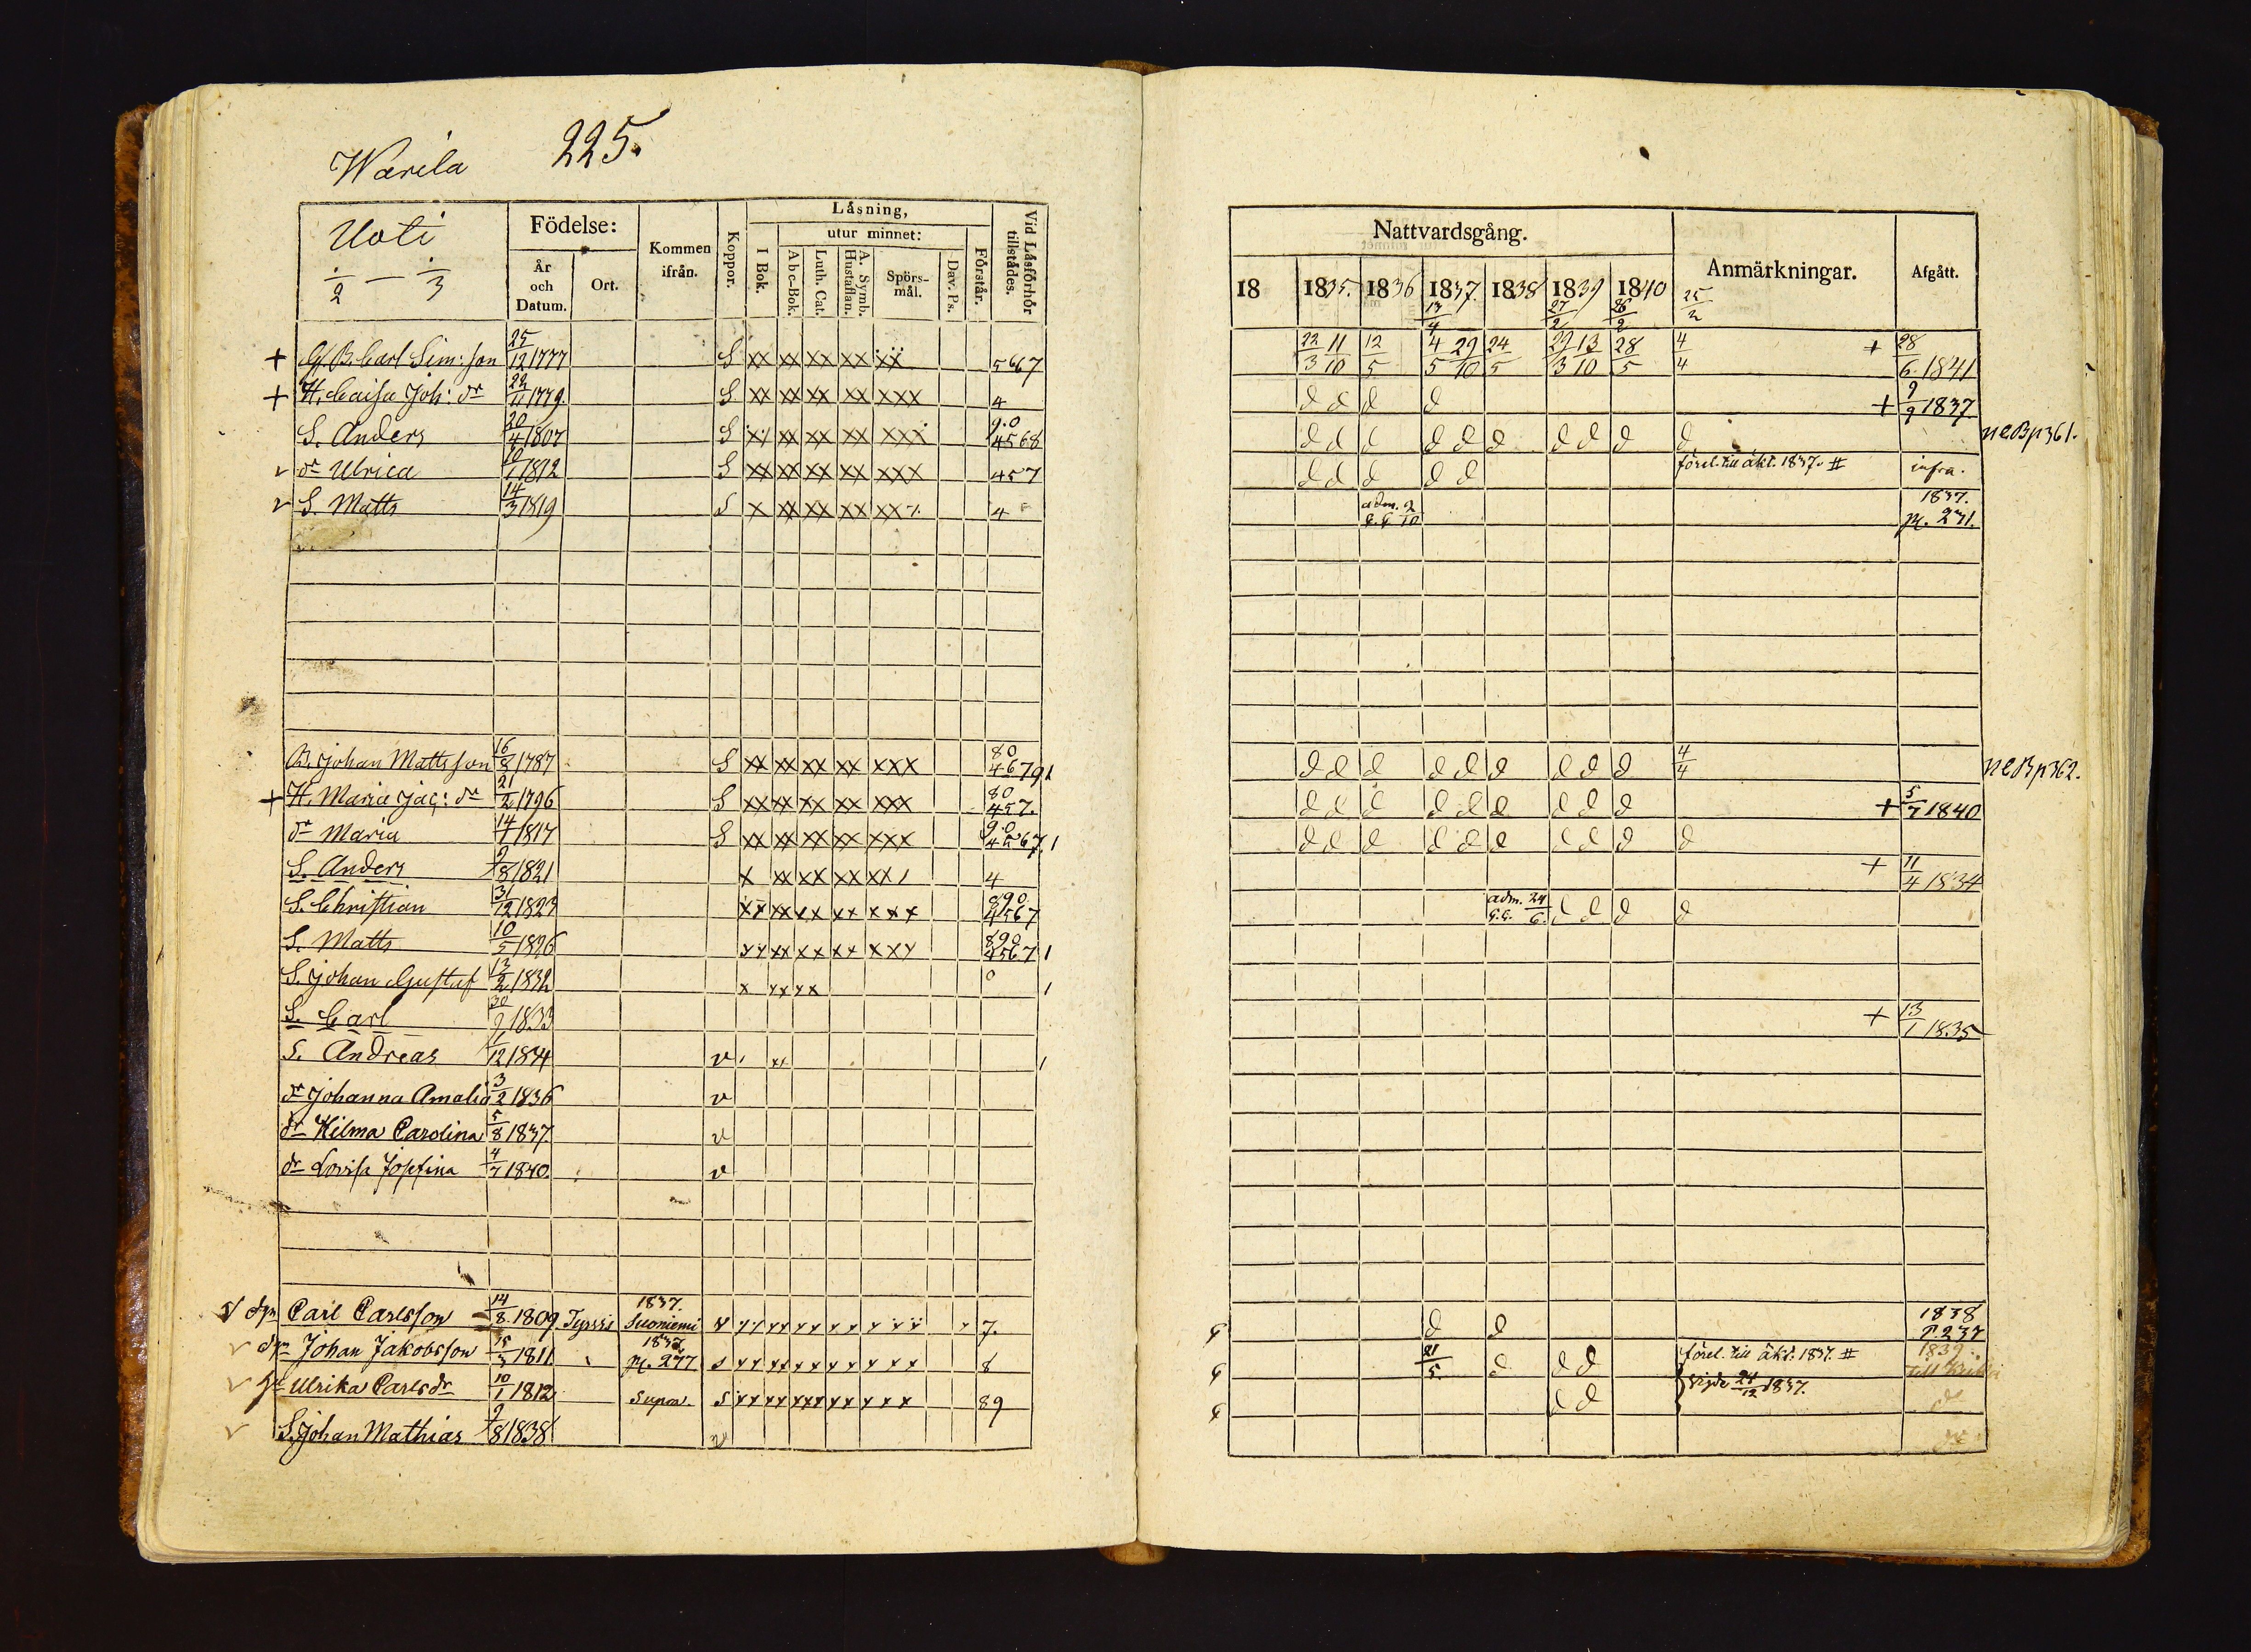 Warila 225.
Uoti
1/2 — 1/3
Födelse:
År och Datum.
Ort.
Kommen ifrån.
Koppor.
Läsning,
utur minnet:
I Bok.
Abc-Bok.
Luth. Cat.
A. Symb. Hustaflan.
Spörsmål.
Dav. Ps.
Förstår.
Vid Läsförhör tillstådes.
Nattvardsgång.
18 1835. 1836 1837. 1838 1839 1840
Anmärkningar.
Afgått.
13/4 27/2 26/2 25/2
+ B. Carl Sim: son 25/12 1777 S xx xx xx xx xx 567 22/3 11/10 12/5 4/5 29/10 24/5 29/3 13/10 28/5 4/4 + 28/6 1841
+ H. Caisa Joh: dr 22/11 1779. S xx xx xx xx xxx 4 d d d d + 9/9 1837
S. Anders 20/4 1807 S xx xx xx xx xxx 9.0 4568 d d d d d d d d d d ne B p 361.
v dr Ulrica 10/1 1812 S xx xx xx xx xxx 457 d d d d d förel. till äkt. 1837. # infra.
v S. Matts 14/3 1819 S x xx xx xx xx 4 adm. 2/10 1837. p. 271.
B. Johan Mattsson 16/8 1787 S xx xx xx xx xxx 80 46791 d d d d d d d d d 4/4 ne B p 362.
+ H. Maria Jac: dr 21/2 1796 S xx xx xx xx xxx 80 457. d d d d d d d d d + 5/7 1840
dr Maria 14/1 1817 S xx xx xx xx xxx 9.0 4567.1 d d d d d d d d d d
S. Anders 9/8 1821 x xx xx xx xx 4 + 11/4 1834
S. Christian 31/12 1823 xx xx xx xx xxx 890 4567 adm. 24/6. d d d d
S. Matts 10/5 1826 xx xx xx xx xxx 890 4567 1
S. Johan Gustaf 13/2 1832 x xx xx 0 1
S. Carl 30/9 1833 + 13/1 1835
S. Andreas 12 1834 v xx 1
dr Johanna Amalia 3/2 1836 v
dr Hilma Carolina 5/8 1837 v
dr Lovisa Josefina 4/7 1840. v
Carl Carlsson 14/8 1809 Tyrssi 1837. Suoniemi v xx xx xx xx xxx 7. d d 1838 p. 237
v Johan Jakobsson 15/3 1811 1837 p. 277 s xx xx xx xx xxx 8 21/5. d d d förel. till äkt. 1837. # 1839.
v Ulrika Carlsdr 10/1 1812 supra. s xx xx xx xx xxx 89 d d vigde 28/12 1837. d
v S. Johan Mathias 9/8 1838 v